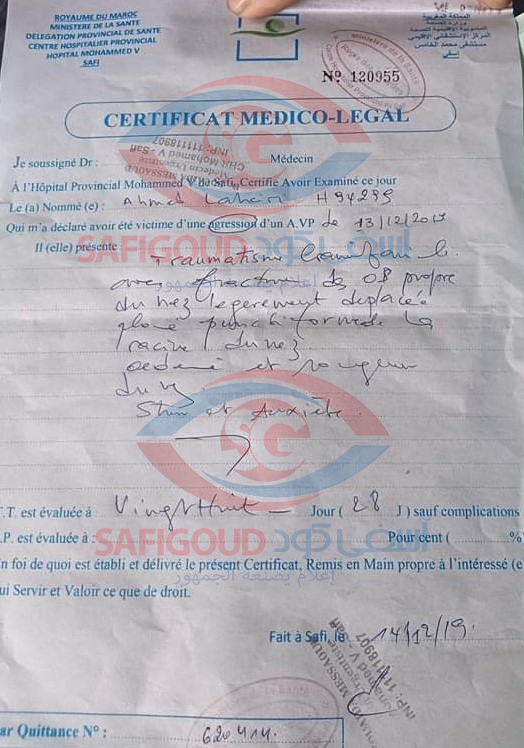 ROYAUME DU MAROC
MINISTERE DE LA SANTE
DELEGATION PROVINCIAL DE SANTE
CENTRE HOSPITALIER PROVINCIAL
HOPITAL MOHAMMED V
SAFI
المملكة المغربية
المركز الإستشفائي الإقليمي
مستشفى محمد الخامس
أسفي
Nº 120955
CERTIFICAT MEDICO-LEGAL
INP: 111118907
CHR Mohamed V - Safi
Médecin Urgentiste
Je soussigné Dr : Médecin
À l'Hôpital Provincial Mohammed V de Safi, Certifie Avoir Examiné ce jour
Le (a) Nommé (e) : Ahmed H94299
Qui m'a déclaré avoir été victime d'une agression d'un A.VP de 13/12/2019
Il (elle) présente :
SAFIGOUD أسفي كود
إعلام يصنعه الجمهور
Traumatisme
avec fracture des OS propre
du nez légèrement déplacée
plaie punctiforme de la
racine du nez
oedème et rougeur
du nez
Stress et Anxiété.
SG
T.T. est évaluée à Vingt Huit Jour ( 28 J ) sauf complications
.P. est évaluée à : Pour cent ( %
SAFIGOUD أسفي كود
n foi de quoi est établi et délivré le présent Certificat, Remis en Main propre à l'intéressé (e
إعلام يصنعه الجمهور
ui Servir et Valoir ce que de droit.
Fait à Safi, le 14/12/19.
INP: 111118907
ar Quittance N° : 620414